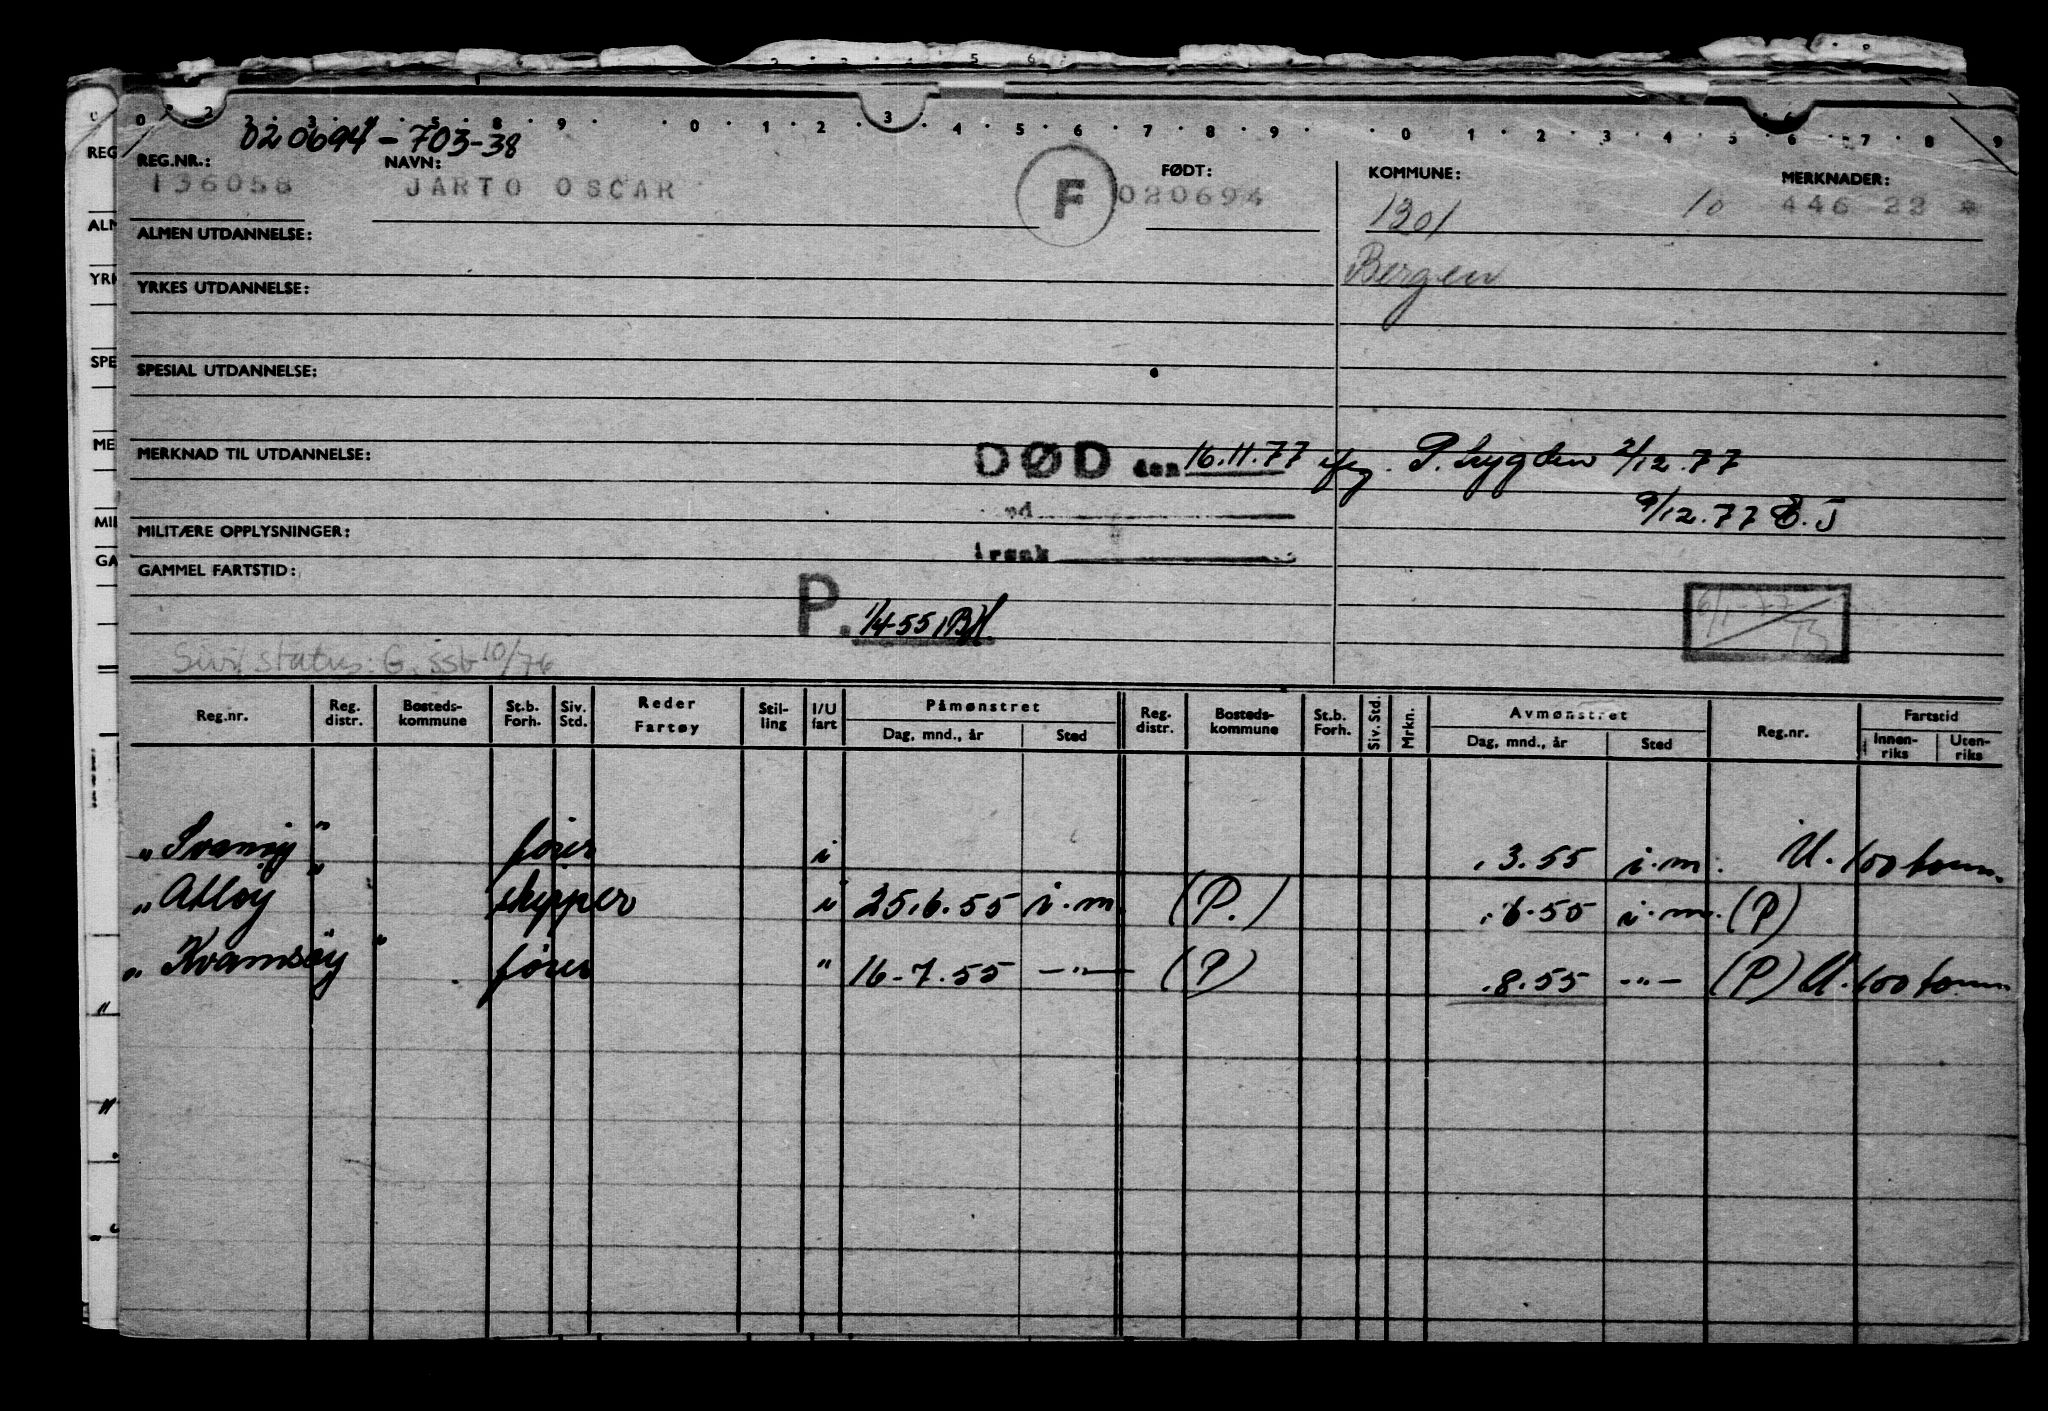 020694 - 703-38
REG.NR.: NAVN: FØDT: KOMMUNE: MERKNADER:
136058 JARTO OSCAR F 020694 1301 10 446 22 *
ALMEN UTDANNELSE: Bergen
YRKES UTDANNELSE:
SPESIAL UTDANNELSE:
MERKNAD TIL UTDANNELSE: DØD den 16.11.77 flg. P. Lygden 2/12.77
9/12.77 E.J
ved
MILITÆRE OPPLYSNINGER:
årsak
GAMMEL FARTSTID:
P. 1/4-55, BH. 6/1-77 B
Sivil status: G. ssb 10/76
Reg.nr. Reg. distr. Bosteds- kommune St.b. Forh. Siv. Std. Reder Fartøy Stil- ling I/U fart Påmønstret Dag, mnd., år Sted Reg. distr. Bosteds- kommune St.b. Forh. Siv. Std. Mrkn. Avmønstret Dag, mnd., år Sted Reg.nr. Fartstid Innen- riks Uten- riks
"Svanøy" fører i .3.55 i.m. U. 100 tonn.
"Atløy" skipper i 25.6.55 i.m (P.) .6.55 i.m. (P)
"Kvamsøy" fører " 16-7.55 —"— (P) .8.55 —"— (P) U. 100 tonn